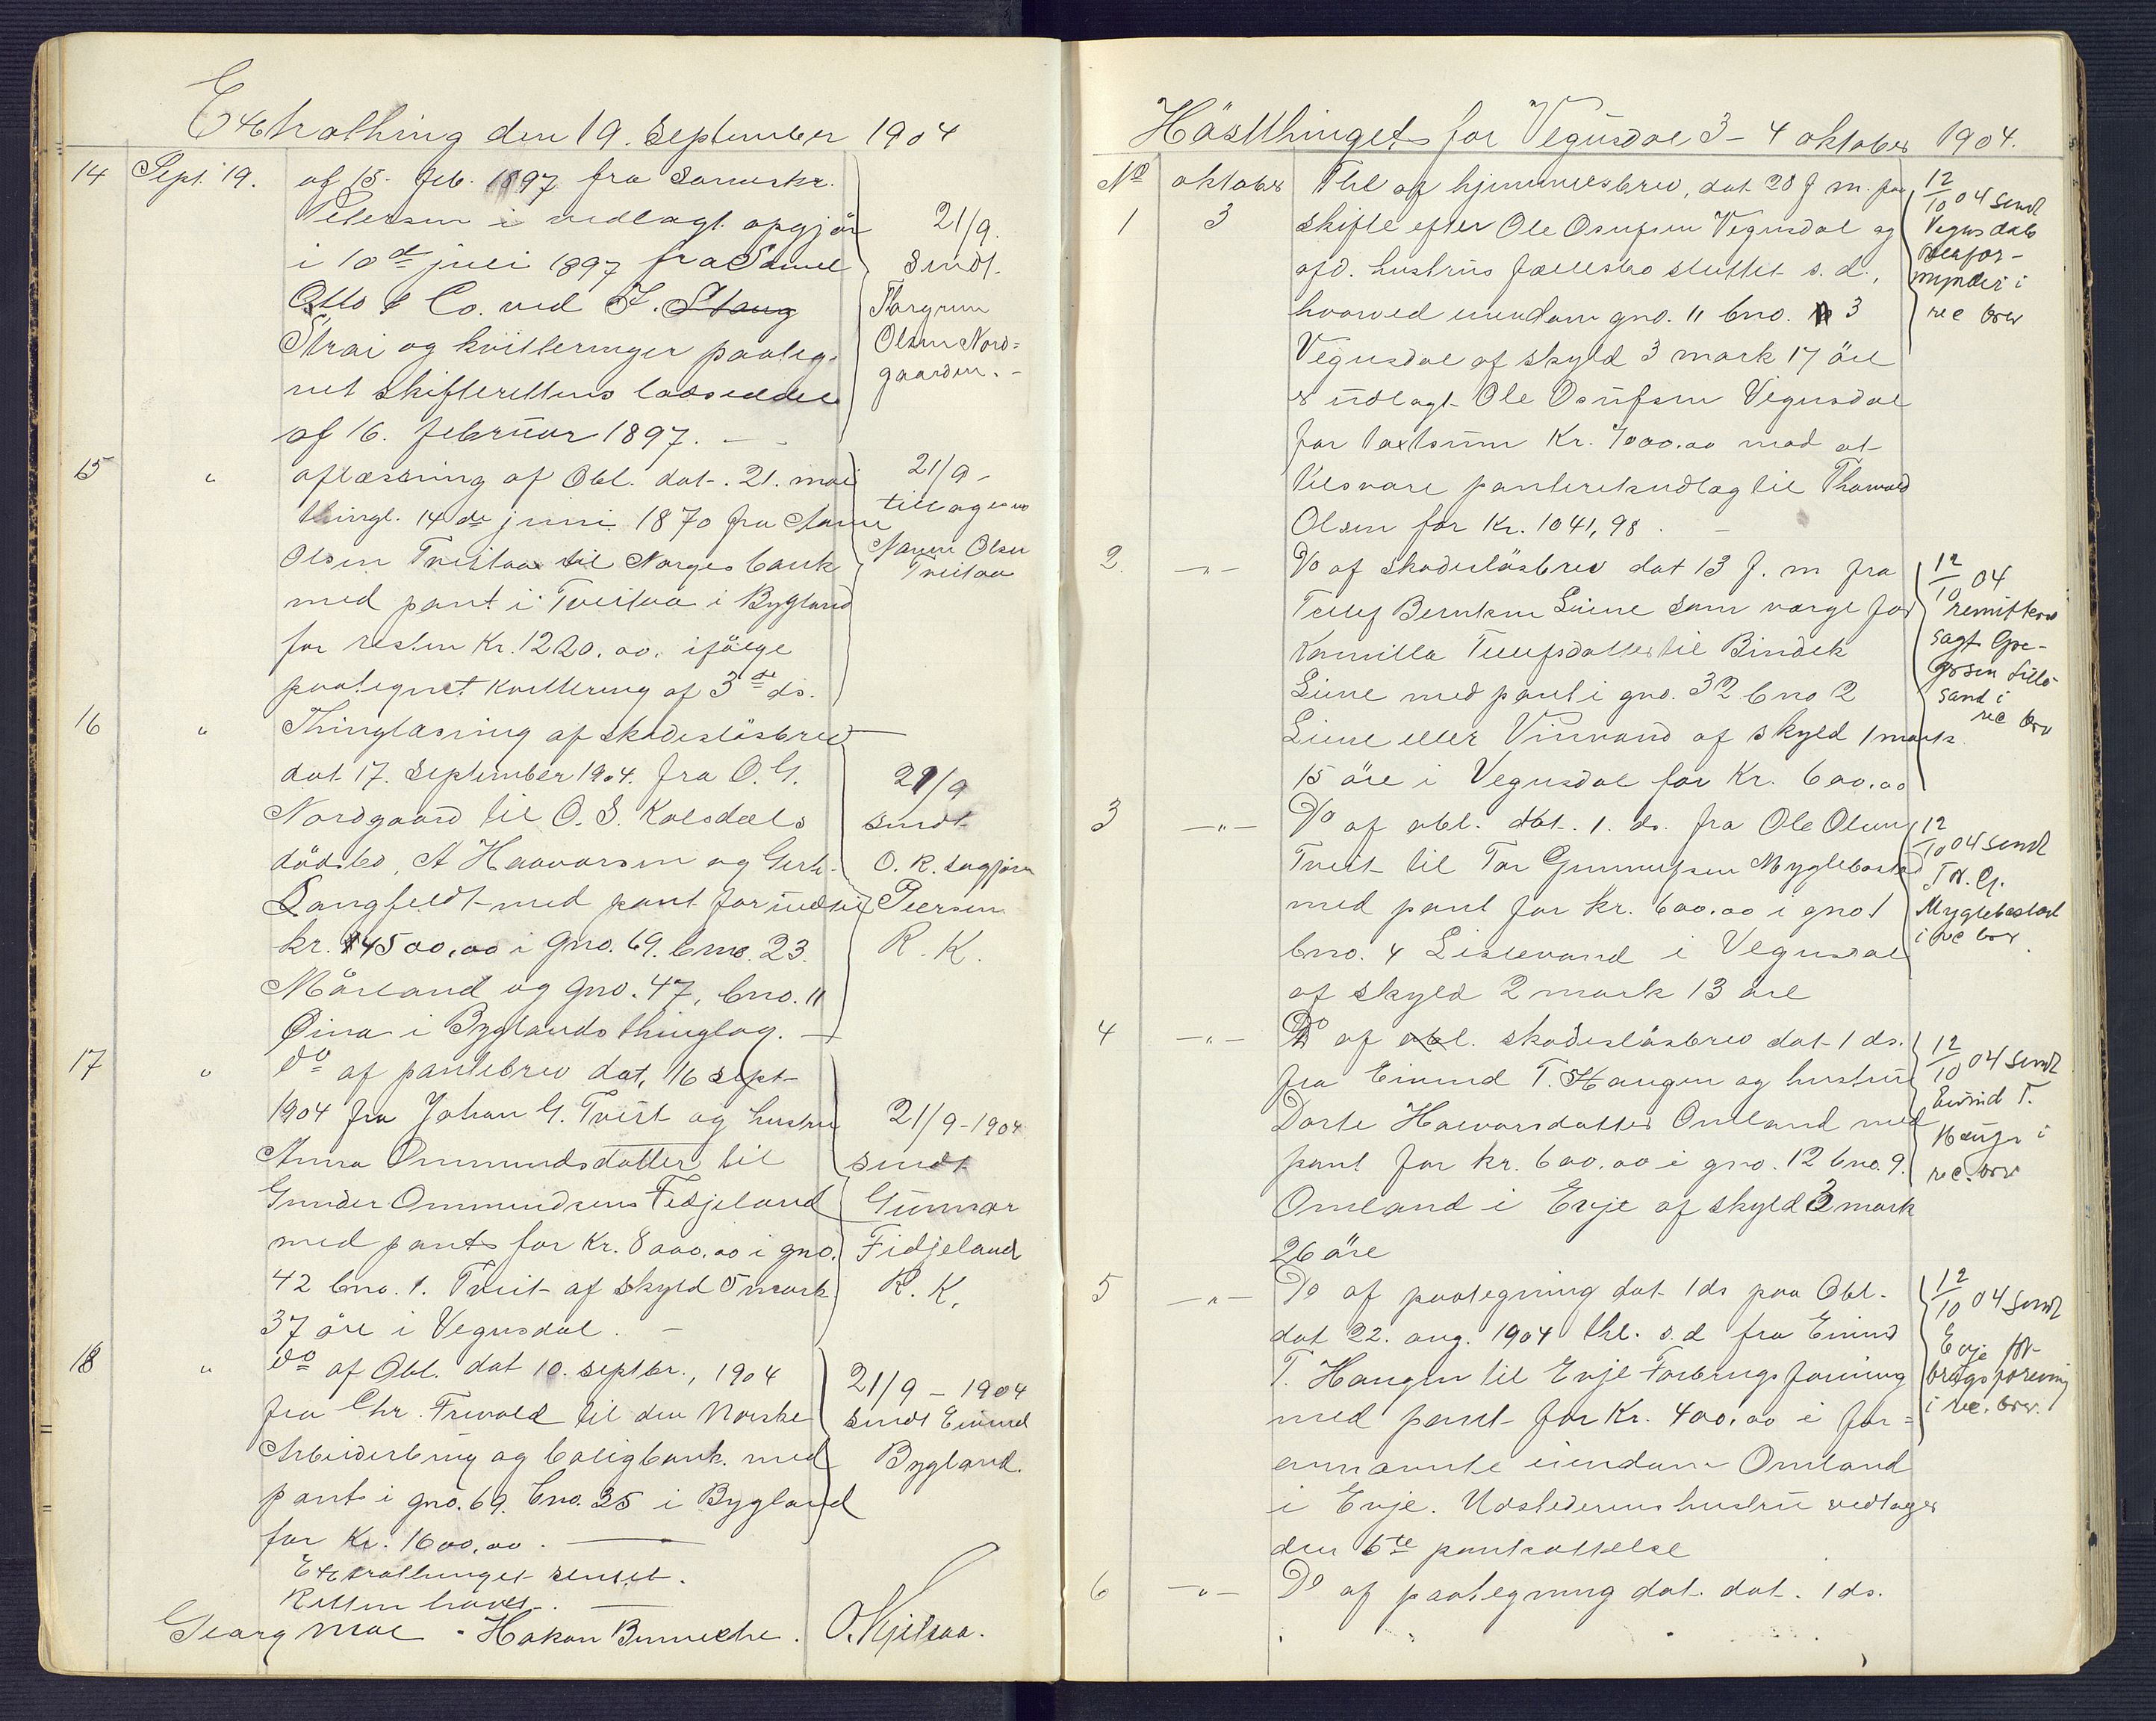 Extrathing den 19. September 1904
14 Sept. 19. af 15. feb. 1897 fra
Petersen i vedlagt opgjör 21/9.
i 10de juli 1897 fra Sendt
Otto & Co. ved F. Stang Thorgrim
Strai og kvitteringer paateg- Olsen Nord=
net skifterettens lodseddel gaarden. -
af 16. februar 1897. - -
15 " aflæsning af Obl. dat. 21. mai 21/9 -
thingl. 14 de juni 1870 fra
Olsen Treitaa til Norges bank Olsen
med pant i Tveitaa i Bygland Treitaa
for resten Kr. 1220.00. ifölge
paategnet kvittering af 3de ds.
16 " Thinglæsning af skadeslösbrev
dat 17. September 1904. fra O. G. 21/9
Nordgaard til O. S. Kolsdals sendt
dödsbo, A Haavorsen og Gerh. O. R. sagförer
Langfeldt med pant for indtil Peersen
kr. 4500,00 i gno. 69. bno. 23. R. K.
Mörland og gno. 47, bno. 11
Öina i Byglands thinglag. -
17 " Do af pantebrev dat, 16 sept-
1904 fra Johan G. Tveit og hustru 21/9-1904
Anna Ommundsdatter til sendt
Gunder Ommundsens Fidjeland Gunnar
med pant for Kr. 8000.00 i gno. Fidjeland
42 bno. 1. Tveit af skyld 5 mark R. K.
37 öre i Vegusdal. -
18 " Do af Obl. dat 10. septbr., 1904 21/9 - 1904
fra Chr. Trevold til den Norske sendt Eivind
Arbeiderbrug og boligbank. med Bygland.
pant i gno. 69. bno. 35 i Bygland
for Kr. 1600.00.
Extrathinget sluttet.
Retten hævet.
Georg Moe - Hakon Bunwelche. O. Kjetsaa.
Hösttinget for Vegusdal 3-4 oktober 1904.
No oktober Thl af hjemmelsbrev, dat 28 f m. fra 12/10 04 sendt
1 3 skifte efter Ole Osufsen Vegusdal og Vegusdals
afd. hustrus fællesbo sluttet s. d., overfor-
hvorved eiendom gno. 11 bno. 3 mynderi i
Vegusdal af skyld 3 mark 17 öre rec brev
er udlagt Ole Osufsen Vegusdal
for taxtsum Kr. 7000.00 mod at
tilsvare panteretsudlag til Thorvald
Olsen for Kr. 1041,98. -
2. -"- Do af skadeslösbrev dat 13 f. m fra 12/10 04
Tellef Berntsen Liene som værge for remitteret
Kamilla Tellefsdatter til Bindek sagf. Gre-
Liene med pant i gno. 32 bno 2 gersen Lille-
Liene eller Vinvand af skyld 1 mark sand i
15 öre i Vegusdal for Kr. 600.00 rec brev
3 -"- Do af obl. dat. 1. ds. fra Ole Olsen 12/10 04 sendt
Tveit til Tor Gunnufsen Myglebostad T. G.
med pant for kr. 600.00 i gno 1 Myglebostad
bno. 4 Lislevand i Vegusdal i rec brev.
af skyld 2 mark 13 öre
4 -"- Do af obl. skadeslösbrev dat 1 ds. 12/10 04 sendt
fra Eivind T. Haugen og hustru Eivind T.
Dorte Havorsdatter Omland med Haugen i
pant for kr. 600.00 i gno. 12 bno. 9. rec. brev
Omland i Evje af skyld 3 mark
26 öre
5 -"- Do af paategning dat 1 ds paa Obl. 12/10 04 sendt
dat 22. aug. 1904 thl. s. d fra Eivind Evje for-
T. Haugen til Evje Forbrugsforening brugsforening
med pant for Kr. 400.00 i for= i rec. brev.
annævnte eiendom Omland
i Evje. Udstederens hustru vedtager
den 6te pantsættelse
6 -"- Do af paategning dat. dat. 1 ds.